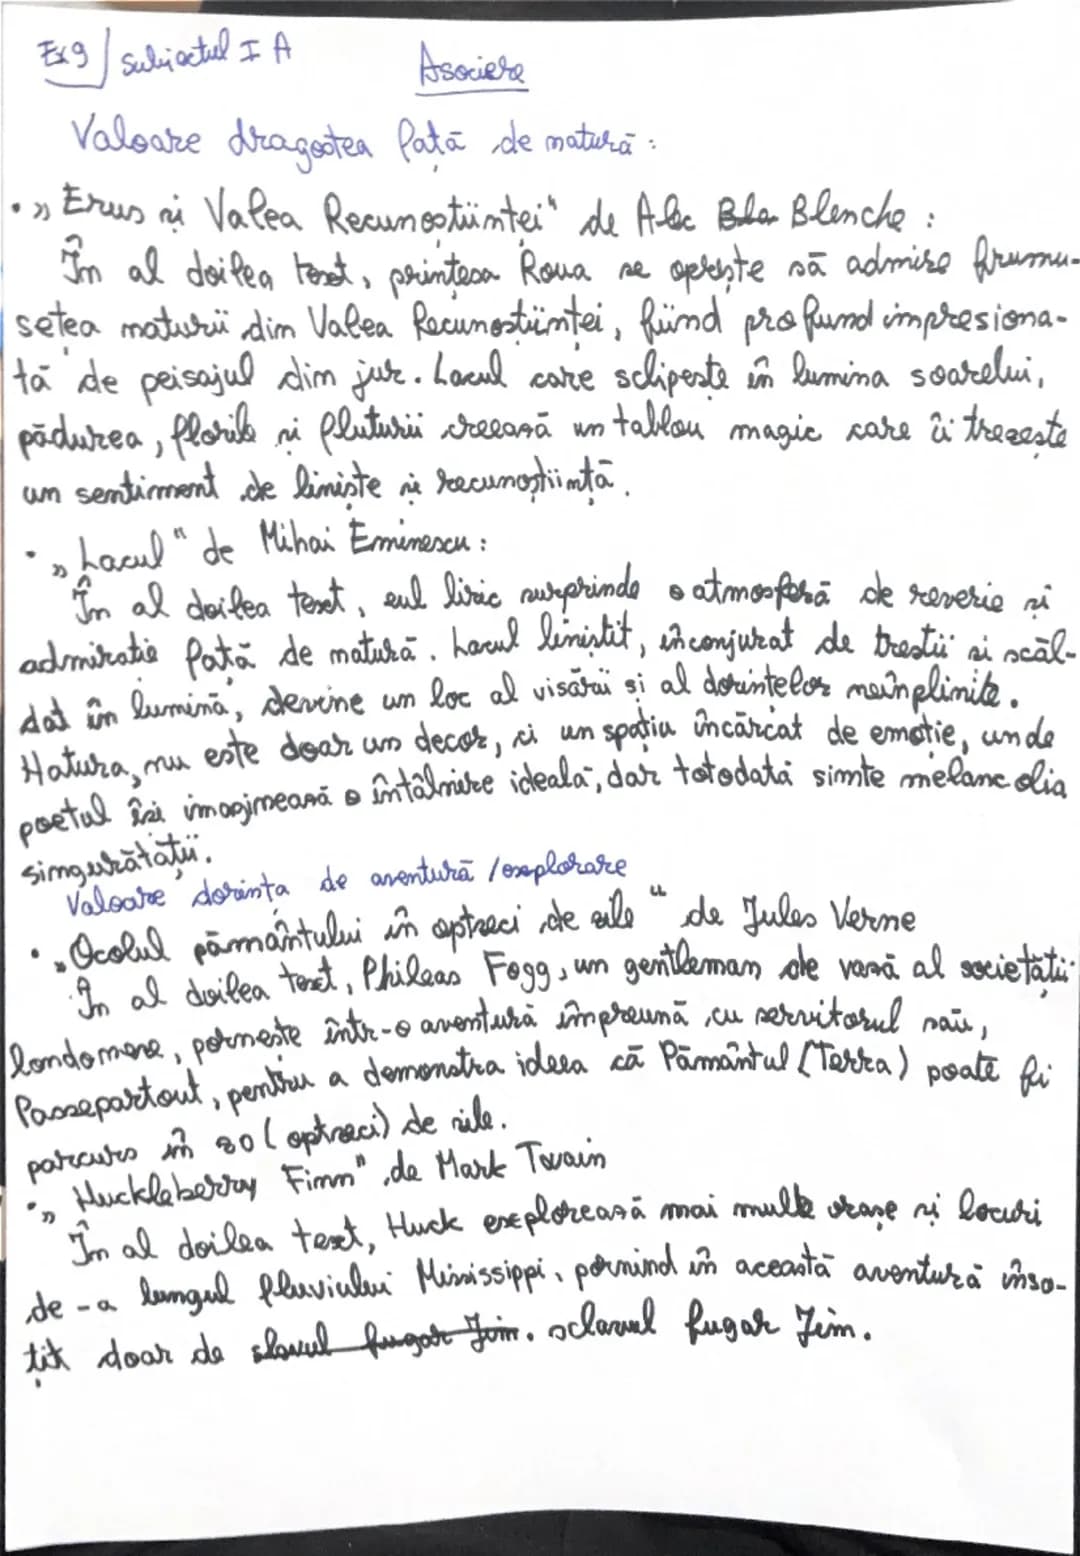 Ex9/ Subiectul I A
Asociere
Valoare dragostea față de natură:
• „Erus și Valea Recunoștiinței" de Alec Bla Blenche:
În al doilea text, prințesa Roua se oprește să admire frumu-
sețea naturii din Valea Recunoștiinței, fiind profund impresiona-
tă de peisajul din jur. Lacul care sclipește în lumina soarelui,
pădurea, florile și fluturii creează un tablou magic care îi trezește
un sentiment de liniște și recunoștiință.
• „Lacul" de Mihai Eminescu:
În al doilea text, eul liric surprinde o atmosferă de reverie și
admirație față de natură. Lacul liniștit, înconjurat de trestii și scăl-
dat în lumină, devine un loc al visării și al dorințelor neînplinite.
Natura, nu este doar un decor, ci un spațiu încărcat de emoție, unde
poetul își imaginează o întâlnire ideală, dar totodată simte melancolia
singurătății.
Valoare dorința de aventură /explorare
• „Ocolul pământului în optzeci de zile" de Jules Verne
În al doilea text, Phileas Fogg, un gentleman de vază al societății
londoneze, pornește într-o aventură împreună cu servitorul său,
Passepartout, pentru a demonstra ideea că Pământul (Terra) poate fi
parcurs în 80 (optzeci) de zile.
• „Huckleberry Finn" de Mark Twain
În al doilea text, Huck explorează mai multe orașe și locuri
de-a lungul fluviului Mississippi, pornind în această aventură înso-
țit doar de slavul fugar Jim. sclavul fugar Jim.